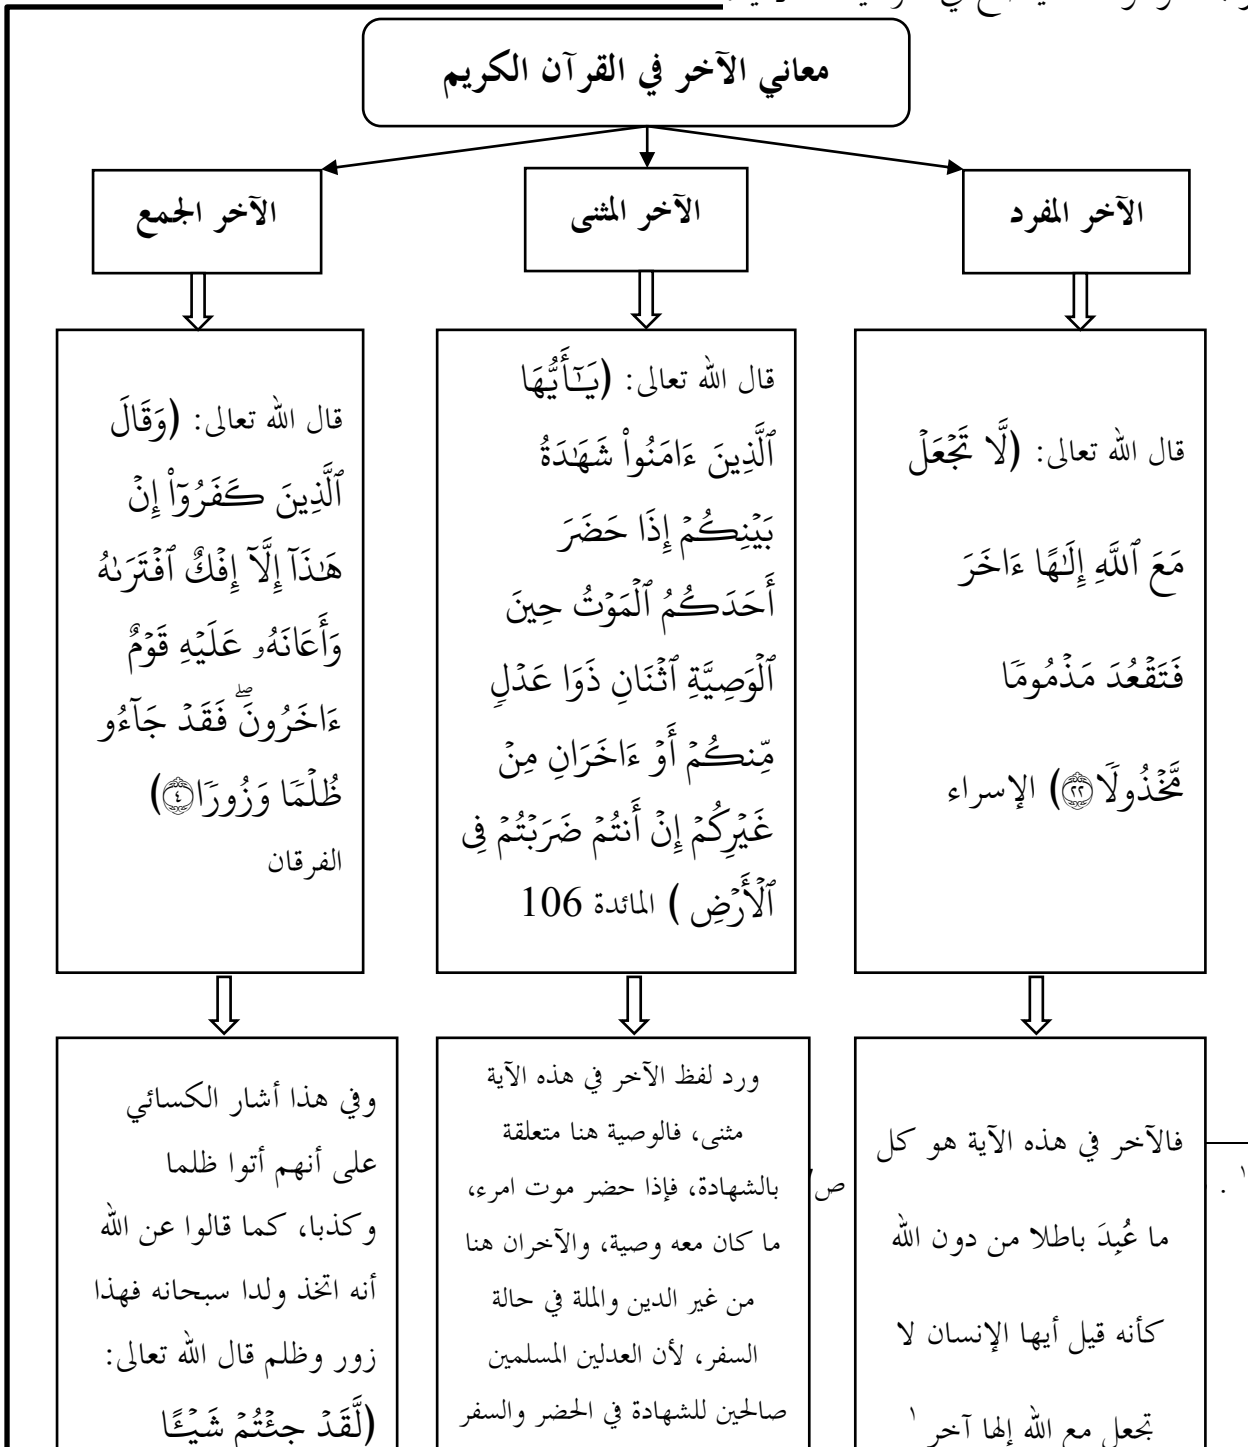 معاني الآخر في القرآن الكريم
الآخر المفرد
الآخر المثنى
الآخر الجمع
قال الله تعالى: (لَّا تَجۡعَلۡ
مَعَ ٱللَّهِ إِلَٰهًا ءَاخَرَ
فَتَقۡعُدَ مَذۡمُومٗا
مَّخۡذُولٗا ٢٢) الإسراء
قال الله تعالى: (يَٰٓأَيُّهَا
ٱلَّذِينَ ءَامَنُواْ شَهَٰدَةُ
بَيۡنِكُمۡ إِذَا حَضَرَ
أَحَدَكُمُ ٱلۡمَوۡتُ حِينَ
ٱلۡوَصِيَّةِ ٱثۡنَانِ ذَوَا عَدۡلٖ
مِّنكُمۡ أَوۡ ءَاخَرَانِ مِنۡ
غَيۡرِكُمۡ إِنۡ أَنتُمۡ ضَرَبۡتُمۡ فِي
ٱلۡأَرۡضِ ) المائدة 106
قال الله تعالى: (وَقَالَ
ٱلَّذِينَ كَفَرُوٓاْ إِنۡ
هَٰذَآ إِلَّآ إِفۡكٌ ٱفۡتَرَىٰهُ
وَأَعَانَهُۥ عَلَيۡهِ قَوۡمٌ
ءَاخَرُونَۖ فَقَدۡ جَآءُو
ظُلۡمٗا وَزُورٗا ٤)
الفرقان
فالآخر في هذه الآية هو كل
ما عُبِدَ باطلا من دون الله
كأنه قيل أيها الإنسان لا
تجعل مع الله إلها آخر ١
ورد لفظ الآخر في هذه الآية
مثنى، فالوصية هنا متعلقة
بالشهادة، فإذا حضر موت امرء،
ما كان معه وصية، والآخران هنا
من غير الدين والملة في حالة
السفر، لأن العدلين المسلمين
صالحين للشهادة في الحضر والسفر
وفي هذا أشار الكسائي
على أنهم أتوا ظلما
وكذبا، كما قالوا عن الله
أنه اتخذ ولدا سبحانه فهذا
زور وظلم قال الله تعالى:
(لَّقَدۡ جِئۡتُمۡ شَيۡـًٔا
١ .
ص